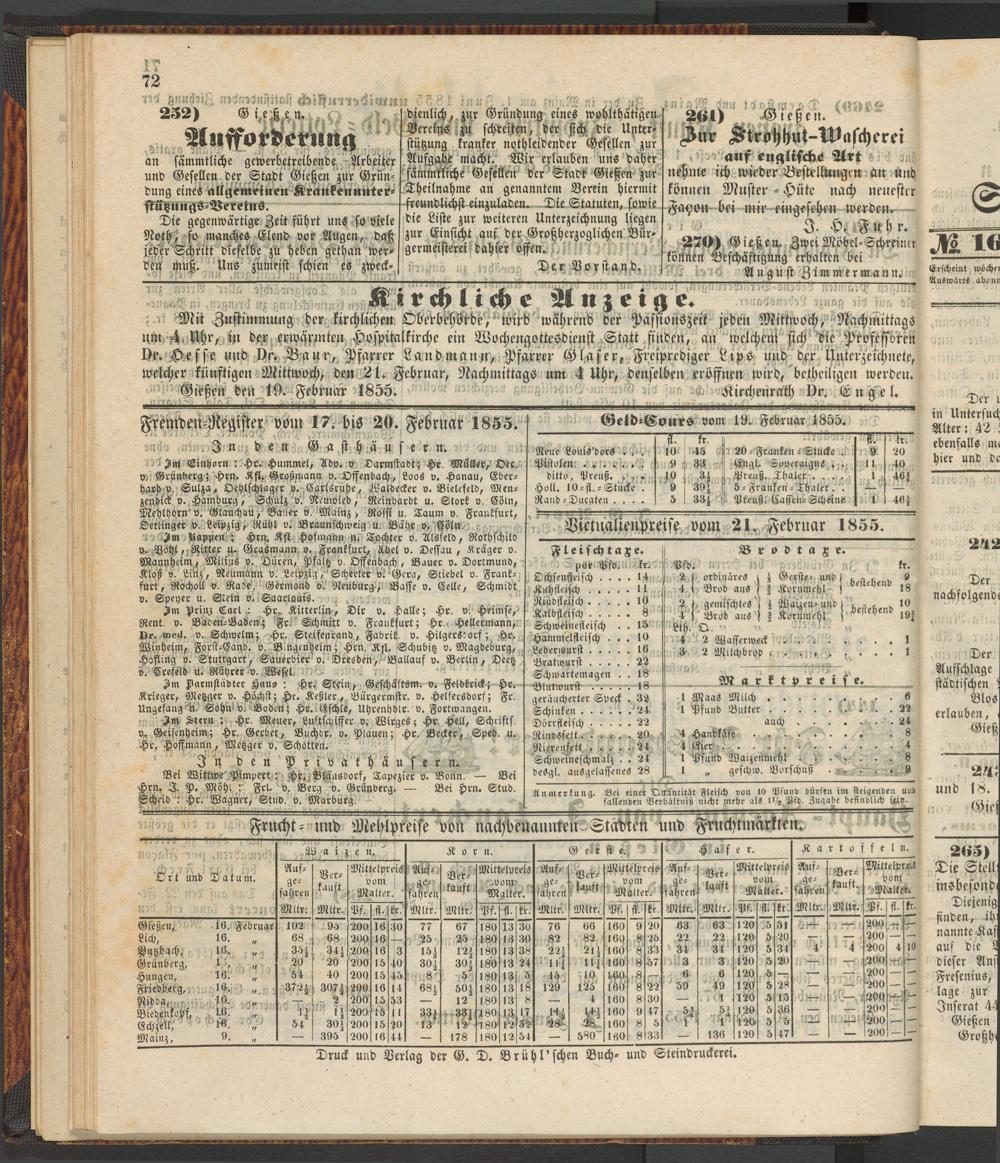 72
252) Gießen.
Aufforderung
an sämmtliche gewerbetreibende Arbeiter
und Gesellen der Stadt Gießen zur Grün-
dung eines allgemeinen Krankenunter-
stützungs-Vereins.
Die gegenwärtige Zeit führt uns so viele
Noth, so manches Elend vor Augen, daß
jeder Schritt dieselbe zu heben gethan wer-
den muß. Uns zumeist schien es zweck-
dienlich, zur Gründung eines wohlthätigen
Vereins zu schreiten, der sich die Unter-
stützung kranker nothleidender Gesellen zur
Aufgabe macht. Wir erlauben uns daher
sämmtliche Gesellen der Stadt Gießen zur
Theilnahme an genanntem Verein hiermit
freundlichst einzuladen. Die Statuten, sowie
die Liste zur weiteren Unterzeichnung liegen
zur Einsicht auf der Großherzoglichen Bür-
germeisterei dahier offen.
Der Vorstand.
261) Gießen.
Zur Strohhut-Wascherei
auf englische Art
nehme ich wieder Bestellungen an und
können Muster-Hüte nach neuester
Façon bei mir eingesehen werden.
J. H. Fuhr.
270) Gießen. Zwei Möbel-Schreiner
können Beschäftigung erhalten bei
August Zimmermann.
Kirchliche Anzeige.
Mit Zustimmung der kirchlichen Oberbehörde, wird während der Passionszeit jeden Mittwoch, Nachmittags
um 4 Uhr, in der erwärmten Hospitalkirche ein Wochengottesdienst Statt finden, an welchem sich die Professoren
Dr. Hesse und Dr. Baur, Pfarrer Landmann, Pfarrer Glaser, Freiprediger Lips und der Unterzeichnete,
welcher künftigen Mittwoch, den 21. Februar, Nachmittags um 4 Uhr, denselben eröffnen wird, betheiligen werden.
Gießen den 19. Februar 1855. Kirchenrath Dr. Engel.
Fremden-Register vom 17. bis 20. Februar 1855.
In den Gasthäusern.
Im Einhorn: Hr. Hummel, Adv. v. Darmstadt; Hr. Müller, Oec.
v. Grünberg; Hrn. Kfl. Großmann v. Offenbach, Loos v. Hanau, Eber-
hard v. Sulza, Oehlschläger v. Carlsruhe, Waldecker v. Bielefeld, Men-
zenbick v. Hamburg, Schulz v. Neuwied, Reinhardt u. Stork v. Cöln,
Mehlhorn v. Glauchau, Bauer v. Mainz, Rossi u. Taum v. Frankfurt,
Oettinger v. Leipzig, Rühl v. Braunschweig u. Bähr v. Cöln.
Im Rappen: Hrn. Kfl. Hofmann n. Tochter v. Alsfeld, Rothschild
v. Vöhl, Ritter u. Graßmann v. Frankfurt, Abel v. Dessau, Kräger v.
Mannheim, Milius v. Düren, Pfaltz v. Offenbach, Bauer v. Dortmund,
Kloß v. Linz, Neumann v. Leipzig, Scherler v. Gera, Stiebel v. Frank-
furt, Rocholl v. Rade, Germond v. Neuburg, Basse v. Celle, Schmidt
v. Speyer u. Stein v. Saarlouis.
Im Prinz Carl: Hr. Kitterlin, Dir. v. Halle; Hr. v. Heimse,
Rent. v. Baden-Baden; Fr. Schmitt v. Frankfurt; Hr. Hellermann,
Dr. med. v. Schwelm; Hr. Steifenrand, Fabrik. v. Hilgersdorf; Hr.
Winheim, Forst-Cand. v. Bingenheim; Hrn. Kfl. Schubitz v. Magdeburg,
Hosting v. Stuttgart, Sauerbier v. Dresden, Ballauf v. Berlin, Deetz
v. Crefeld u. Rührer v. Wesel.
Im Darmstädter Haus: Hr. Stein, Geschäftsm. v. Feldkrick; Hr.
Krieger, Metzger v. Höchst; Hr. Keßler, Bürgermstr. v. Helfersdorf; Fr.
Ungefang n. Sohn v. Boden; Hr. Eschle, Uhrenhdlr. v. Fortwangen.
Im Stern: Hr. Meuer, Luftschiffer v. Wirges; Hr. Hell, Schriftf.
v. Geisenheim; Hr. Gerbet, Buchdr. v. Plauen; Hr. Becker, Sped. u.
Hr. Hoffmann, Metzger v. Schotten.
In den Privathäusern.
Bei Wittwe Pimpert: Hr. Blänsdorf, Tapezier v. Bonn. — Bei
Hrn. J. P. Möhl: Frl. v. Berg v. Grünberg. — Bei Hrn. Stud.
Scheid: Hr. Wagner, Stud. v. Marburg.
Geld-Cours vom 19. Februar 1855.
fl. kr. fl. kr.
Neue Louis'dors . . . 10 45 20-Franken-Stücke . 9 20
Pistolen . . . . 9 33 Engl. Sovereigns . . 11 40
ditto, Preuß. . . . 10 3½ Preuß. Thaler . . . — 46¼
Holl. 10-fl.-Stücke . 9 39½ 5-Franken-Thaler . —
Rand-Ducaten . . . 5 33½ Preuß. Cassen-Scheine 1 46¼
Victualienpreise vom 21. Februar 1855.
Fleischtaxe.
per Pfd. kr.
Ochsenfleisch . . . . 14
Kuhfleisch . . . . . 11
Rindfleisch . . . . 10
Kalbfleisch . . . . 8
Schweinefleisch . . . 15
Hammelfleisch . . . 10
Leberwurst . . . . 16
Bratwurst . . . . . 22
Schwartemagen . . 18
Blutwurst . . . . . 18
geräucherter Speck . 32
Schinken . . . . . 24
Dörrfleisch . . . . 22
Rindsfett . . . . . 20
Nierenfett . . . . 24
Schweineschmalz . . 24
desgl. ausgelassenes 28
Brodtaxe.
Pfd. kr.
2 } ordinäres } ½ Gerste- und } bestehend 9
4 } Brod aus } ½ Kornmehl 18
2 } gemischtes } ½ Waizen- und } bestehend 10
4 } Brod aus } ½ Kornmehl 19½
Lth. Q.
4 2 Wasserweck . . . 1
3 2 Milchbrod . . . 1
Marktpreise.
1 Maas Milch . . . 6
1 Pfund Butter . . . 22
auch . . . 24
4 Handkäse . . . 8
4 Eier . . . 4
1 Pfund Waizenmehl . . . 8
1 „ geschw. Vorschuß . . . 9
Anmerkung. Bei einer Quantität Fleisch von 10 Pfund dürfen im steigenden und
fallenden Verhältniß nicht mehr als 1½ Pfd. Zugabe befindlich sein.
Frucht- und Mehlpreise von nachbenannten Städten und Fruchtmärkten.
Waizen. Korn. Gerste. Hafer. Kartoffeln.
Ort und Datum. Auf-gefahren Ver-kauft Mittelpreis vom Malter. Auf-gefahren Ver-kauft Mittelpreis vom Malter. Auf-gefahren Ver-kauft Mittelpreis vom Malter. Auf-gefahren Ver-kauft Mittelpreis vom Malter. Auf-gefahren Ver-kauft Mittelpreis vom Malter.
Mltr. Mltr. Pf. fl. kr. Mltr. Mltr. Pf. fl. kr. Mltr. Mltr. Pf. fl. kr. Mltr. Mltr. Pf. fl. kr. Mltr. Mltr. Pf. fl. kr.
Gießen, 16. Februar 102 95 200 16 30 77 67 180 13 30 76 66 160 9 20 63 63 120 5 51 — — 200 — —
Lich, 16. „ 68 68 200 16 — 25 25 180 13 30 82 82 160 8 25 22 22 120 5 20 — — 200 — —
Butzbach, 16. „ 35½ 34½ 200 16 3 15½ 12½ 180 13 38 22½ 21½ 160 8 33 34 34 120 5 34 4 4 200 4 10
Grünberg, 20 20 200 15 40 30½ 30½ 180 13 28 160 8 57 3 3 120 5 20 — — 200 — —
Hungen, 16. „ 54 40 200 15 45 8 5 180 13 5 15 10 160 8 — 6 6 120 5 — — — 200 — —
Friedberg, 16. „ 372½ 307½ 200 16 14 68½ 50½ 180 13 18 129 125 160 8 22 59 49 120 5 28 — — 200 — —
Nidda, 16. „ — 2 200 15 53 — 12 180 13 8 — 4 160 8 30 — 1 120 5 15 — — 200 — —
Biedenkopf, 16. „ 200 15 11 180 13 17 160 9 47 120 5 36 — — 200 — —
Echzell, 16. „ 54 30½ 200 15 20 13 12 180 12 52 28 28 160 8 5 1 1 120 5 5 — — 200 — —
Mainz, 9. „ — 395 200 16 44 — 178 180 12 54 — 580 160 8 33 — 136 120 5 47 — — 200 — —
Druck und Verlag der G. D. Brühl'schen Buch- und Steindruckerei.
№ 16
Erscheint wöchen
Auswärts abonn
Der
in Untersuch
Alter: 42
ebenfalls m
hier und da
242
Der
nachfolgende
Der
Aufschlage
städtischen
Blos
erlauben,
Gieß
243
und 18.
Gieß
265)
Die Stell
insbesond
Diejenig
finden, ih
nannte Kaf
auf die
dieser Ans
Fresenius,
lage zur
Inserat 44
Gießen
Großh